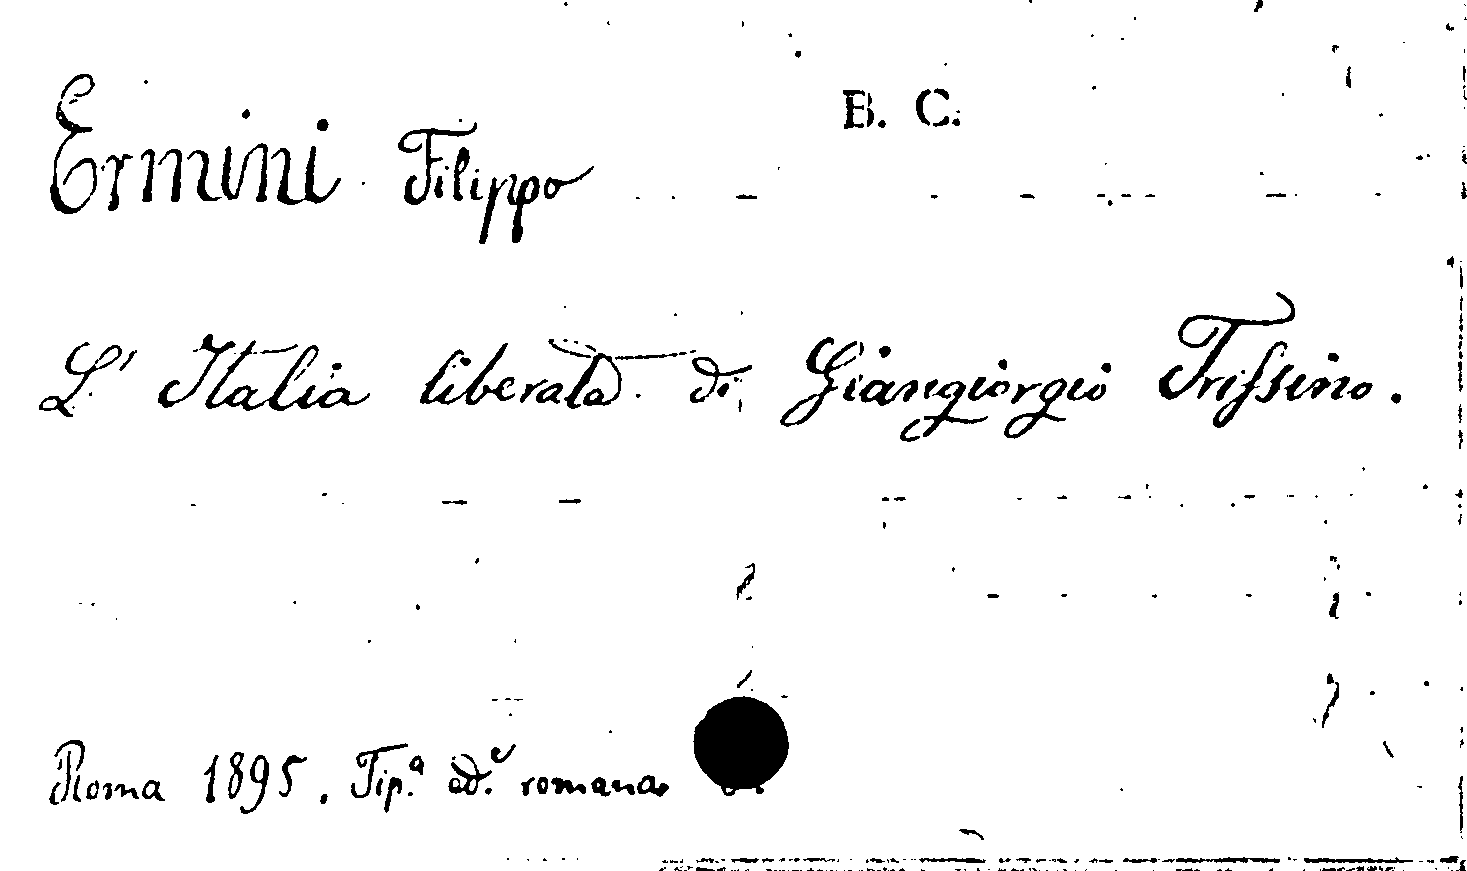 B. C.
Ermini Filippo
L' Italia liberata di Giangiorgio Trissino.
Roma 1895. Tip.a ed.e romana